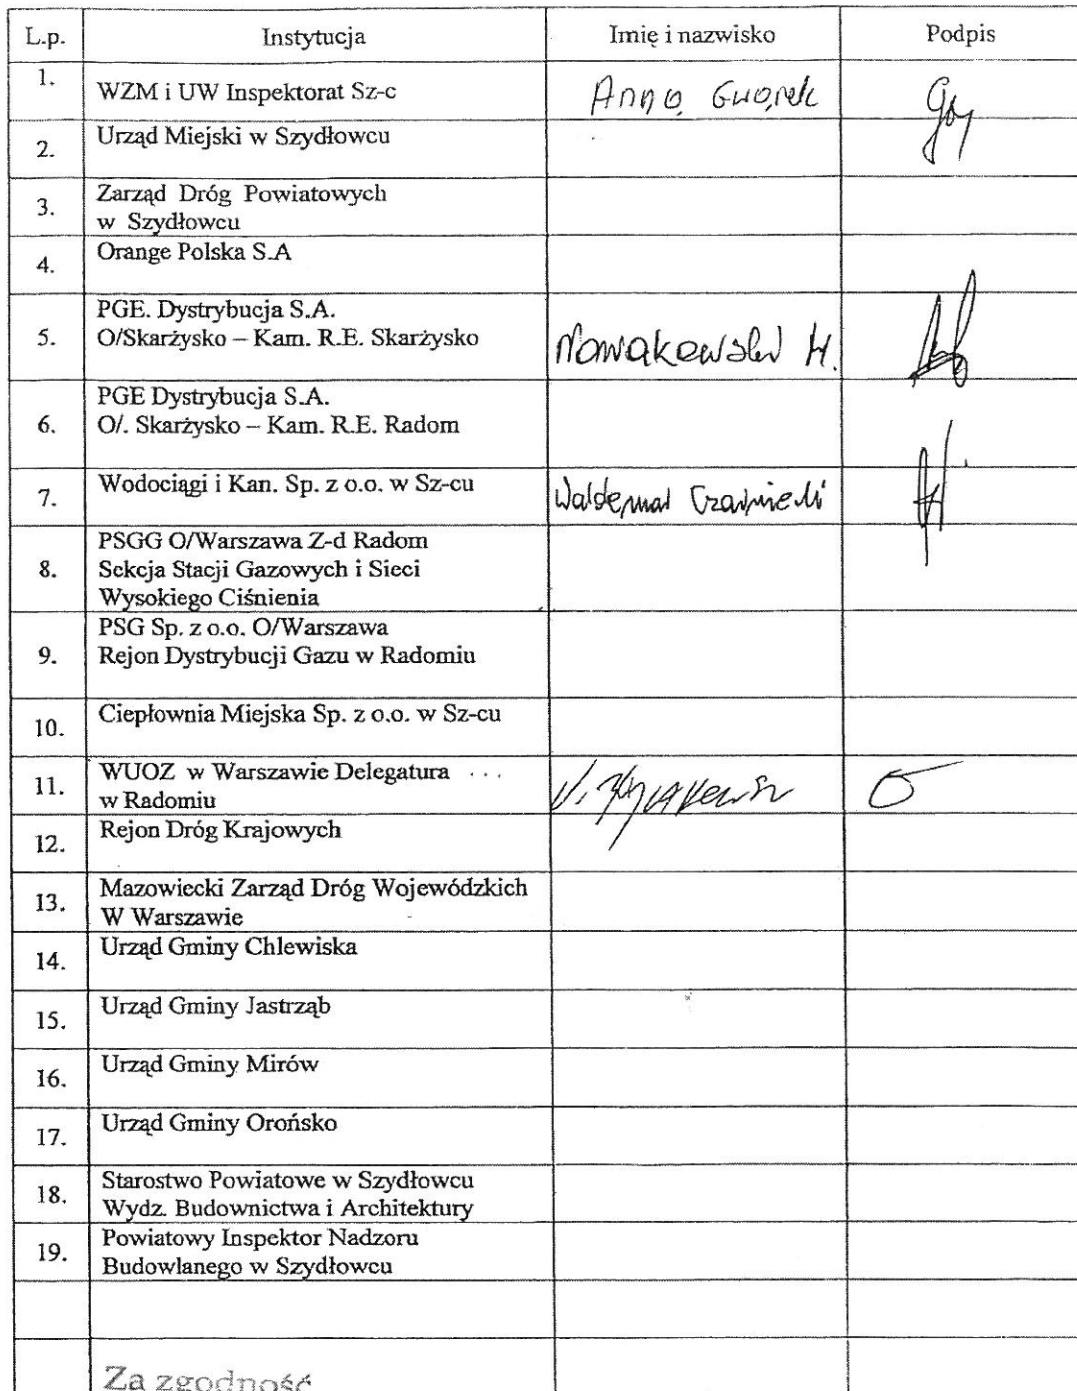 L.p. Instytucja Imię i nazwisko Podpis
1. WZM i UW Inspektorat Sz-c Anna
2. Urząd Miejski w Szydłowcu
3. Zarząd Dróg Powiatowych
w Szydłowcu
4. Orange Polska S.A
5. PGE. Dystrybucja S.A.
O/Skarżysko – Kam. R.E. Skarżysko Nowakowski H.
6. PGE Dystrybucja S.A.
O/. Skarżysko – Kam. R.E. Radom
7. Wodociągi i Kan. Sp. z o.o. w Sz-cu Waldemar Czarniecki
8. PSGG O/Warszawa Z-d Radom
Sekcja Stacji Gazowych i Sieci
Wysokiego Ciśnienia
9. PSG Sp. z o.o. O/Warszawa
Rejon Dystrybucji Gazu w Radomiu
10. Ciepłownia Miejska Sp. z o.o. w Sz-cu
11. WUOZ w Warszawie Delegatura
w Radomiu
12. Rejon Dróg Krajowych
13. Mazowiecki Zarząd Dróg Wojewódzkich
W Warszawie
14. Urząd Gminy Chlewiska
15. Urząd Gminy Jastrząb
16. Urząd Gminy Mirów
17. Urząd Gminy Orońsko
18. Starostwo Powiatowe w Szydłowcu
Wydz. Budownictwa i Architektury
19. Powiatowy Inspektor Nadzoru
Budowlanego w Szydłowcu
Za zgodność